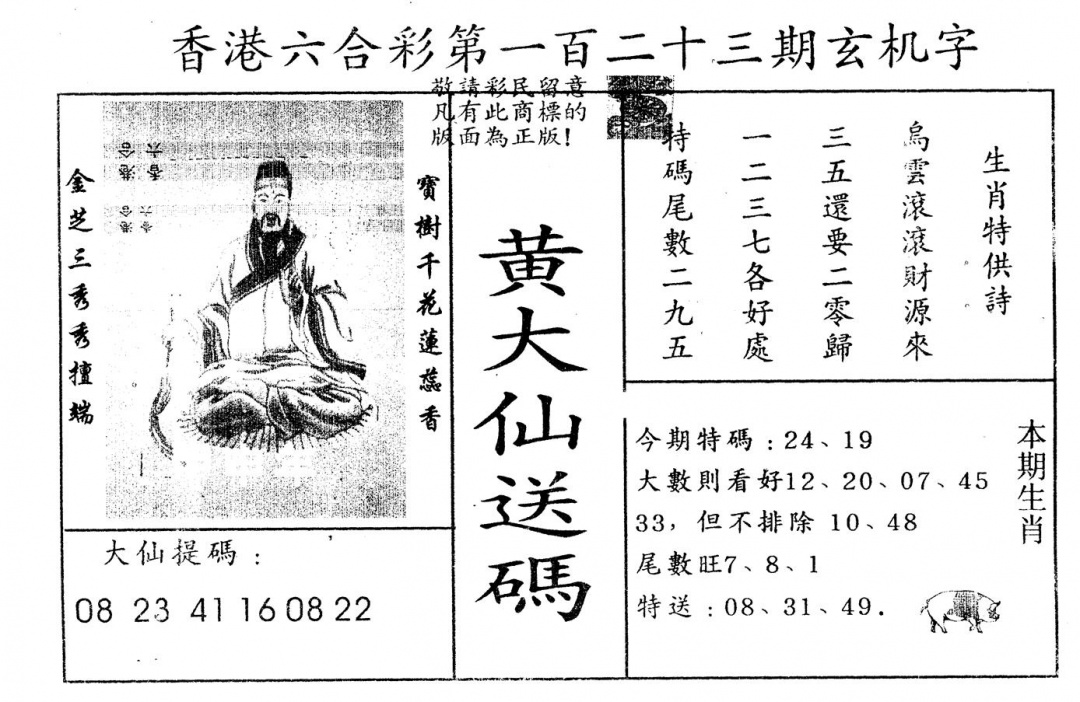 香港六合彩第一百二十三期玄机字
敬請彩民留意
凡有此商標的
版面為正版!
金芝三秀秀擅端
寶樹千花蓮蕊香
大仙提碼:
08 23 41 16 08 22
黄大仙送碼
生肖特供詩
烏雲滾滾財源來
三五還要二零歸
一二三七各好處
特碼尾數二九五
本期生肖
今期特碼:24、19
大數則看好12、20、07、45
33，但不排除 10、48
尾數旺7、8、1
特送:08、31、49.